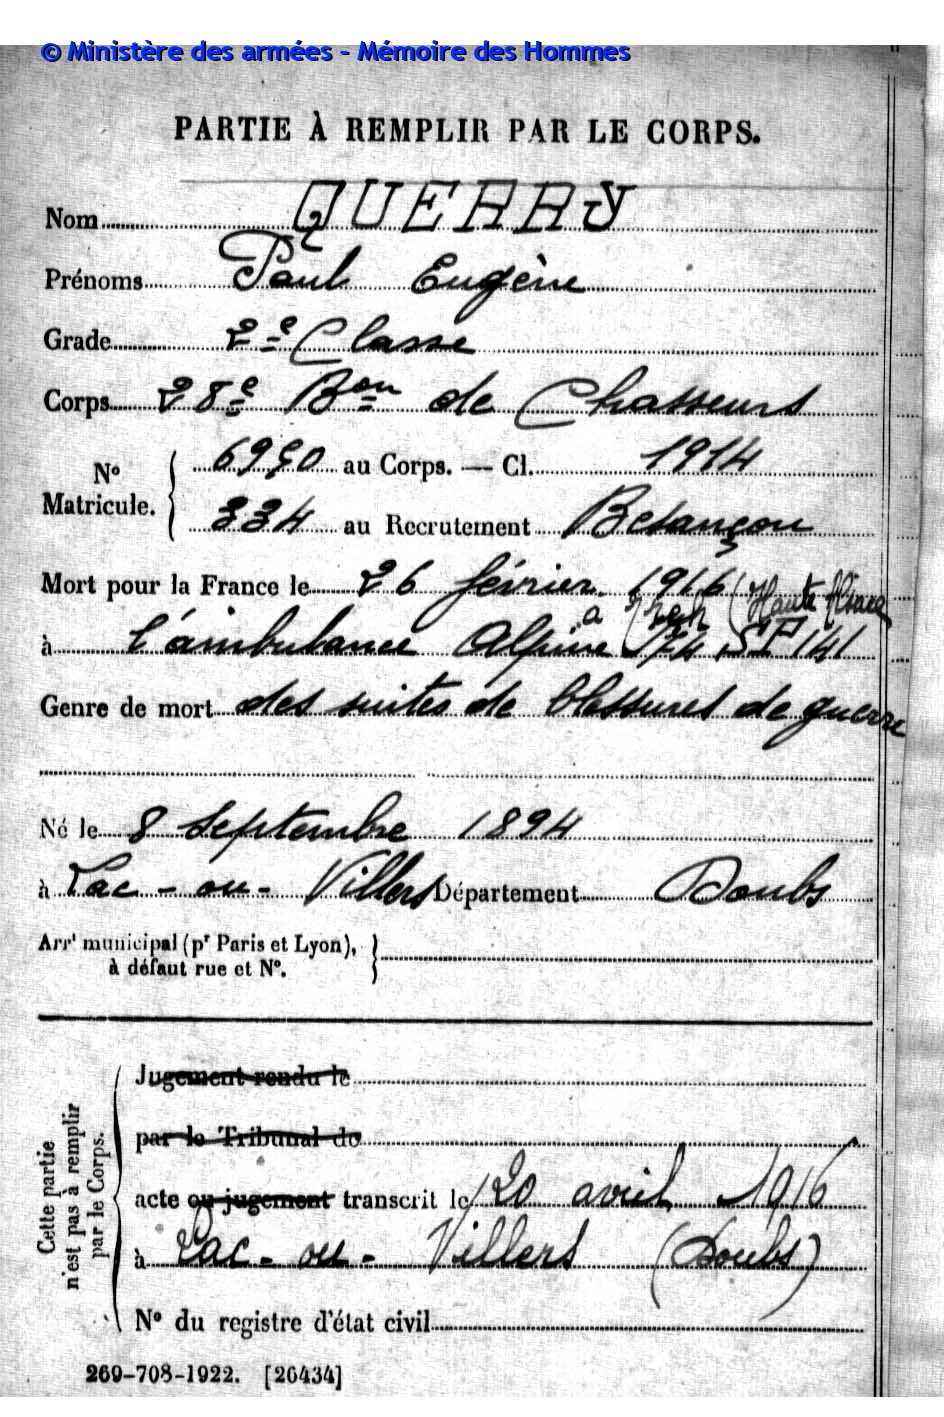 © Ministère des armées - Mémoire des Hommes
PARTIE À REMPLIR PAR LE CORPS.
Nom QUERRY
Prénoms Paul Eugène
Grade 2e Classe
Corps 28e Bon de Chasseurs
N° Matricule. { 6950 au Corps. — Cl. 1914
334 au Recrutement Besançon
Mort pour la France le 26 février 1916 (Haute Alsace
à l'ambulance Alpine 1/74 SP 141
à
Genre de mort des suites de blessures de guerre
Né le 8 Septembre 1894
à Lac-ou-Villers Département Doubs
Arrt municipal (pr Paris et Lyon), à défaut rue et N°.
Cette partie n'est pas à remplir par le Corps.
Jugement rendu le
par le Tribunal de
acte ou jugement transcrit le 20 avril 1916
à Lac-ou-Villers (Doubs)
N° du registre d'état civil
269-708-1922. [26434]